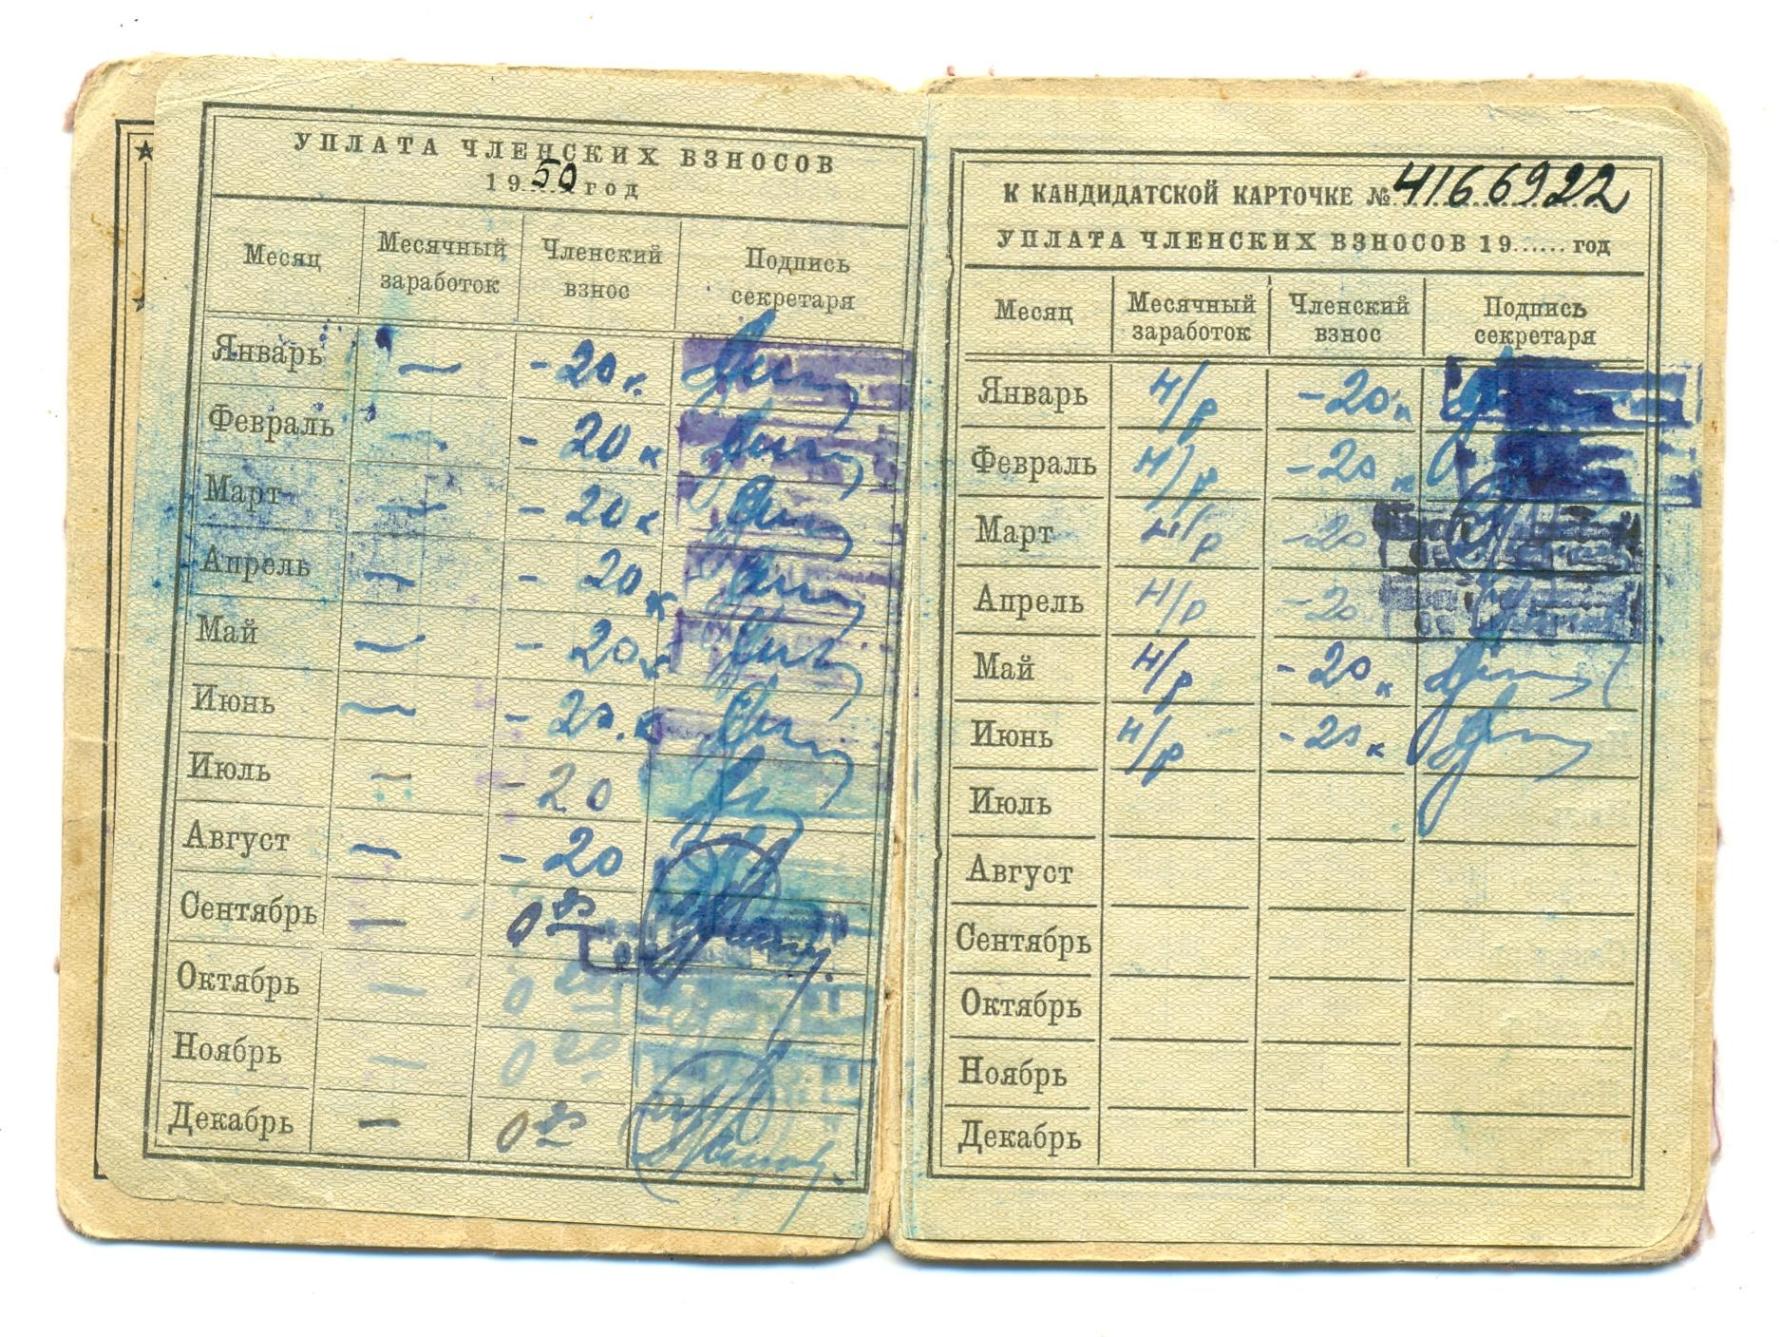 УПЛАТА ЧЛЕНСКИХ ВЗНОСОВ
1950 год
Месяц Месячный заработок Членский взнос Подпись секретаря
Январь — - 20 к.
Февраль — - 20 к
Март — - 20 к
Апрель — - 20 к
Май — - 20 к
Июнь — - 20 к
Июль — - 20
Август — - 20
Сентябрь — 0 20
Октябрь — 0 20
Ноябрь — 0 20
Декабрь — 0 20
К КАНДИДАТСКОЙ КАРТОЧКЕ № 4166922
УПЛАТА ЧЛЕНСКИХ ВЗНОСОВ 19...... год
Месяц Месячный заработок Членский взнос Подпись секретаря
Январь н/р - 20 к
Февраль н/р - 20 к
Март н/р - 20
Апрель н/р - 20
Май н/р - 20 к
Июнь н/р - 20 к
Июль
Август
Сентябрь
Октябрь
Ноябрь
Декабрь